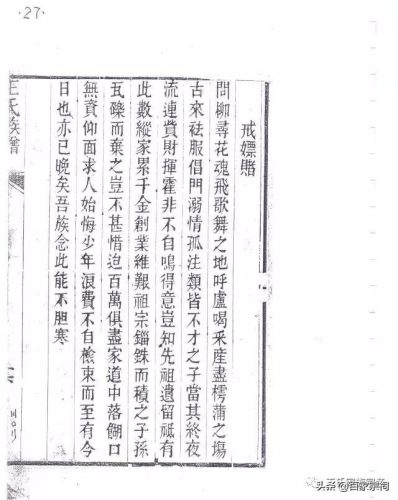 ·27·
戒嫖賭
問柳尋花魂飛歌舞之地呼盧喝采産盡樗蒲之塲
古來袪服倡門溺情孤注類皆不才之子當其終夜
流連費財揮霍非不自鳴得意豈知先祖遺留祗有
此數縱家累千金創業維艱祖宗錙銖而積之子孫
瓦礫而棄之豈不甚惜迨百萬俱盡家道中落餬口
無資仰面求人始悔少年浪費不自檢束而至有今
日也亦已晚矣吾族念此能不胆寒
王氏族譜
头条@百家宗祠